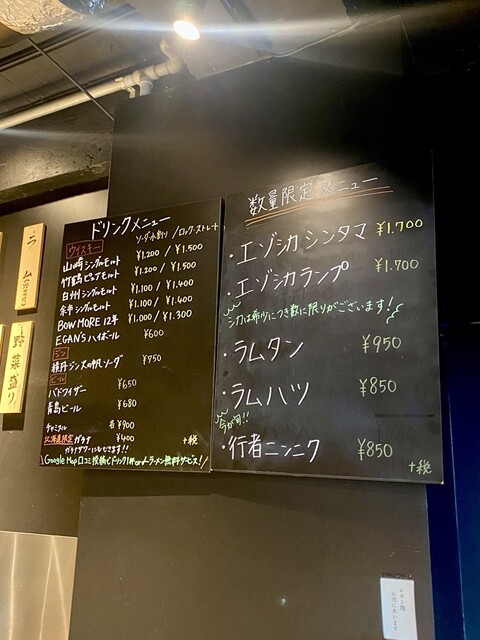 ドリンクメニュー
ソーダ・水割り / ロック・ストレート
ウイスキー
山崎シングルモルト ¥1.200 / ¥1.500
竹鶴ピュアモルト ¥1.200 / ¥1.500
白州シングルモルト ¥1.100 / ¥1.400
余市シングルモルト ¥1.100 / ¥1.400
BOW MORE 12年 ¥1.000 / ¥1.300
EGANSハイボール ¥600
ジン
積丹ジン火の帆ソーダ ¥750
ビール
バドワイザー ¥650
青島ビール ¥680
チャミスル 各¥900
北海道限定ガラナ ¥400
ガラナサワーにもできます!! +税
Google Map口コミ投稿で
ラーメン無料サービス!
数量限定メニュー
・エゾシカシンタマ ¥1.700
・エゾシカランプ ¥1.700
シカは希少につき数に限りがございます!
・ラムタン ¥950
・ラムハツ ¥850
今が旬!!
・行者ニンニク ¥850
+税
ラム
野菜盛り